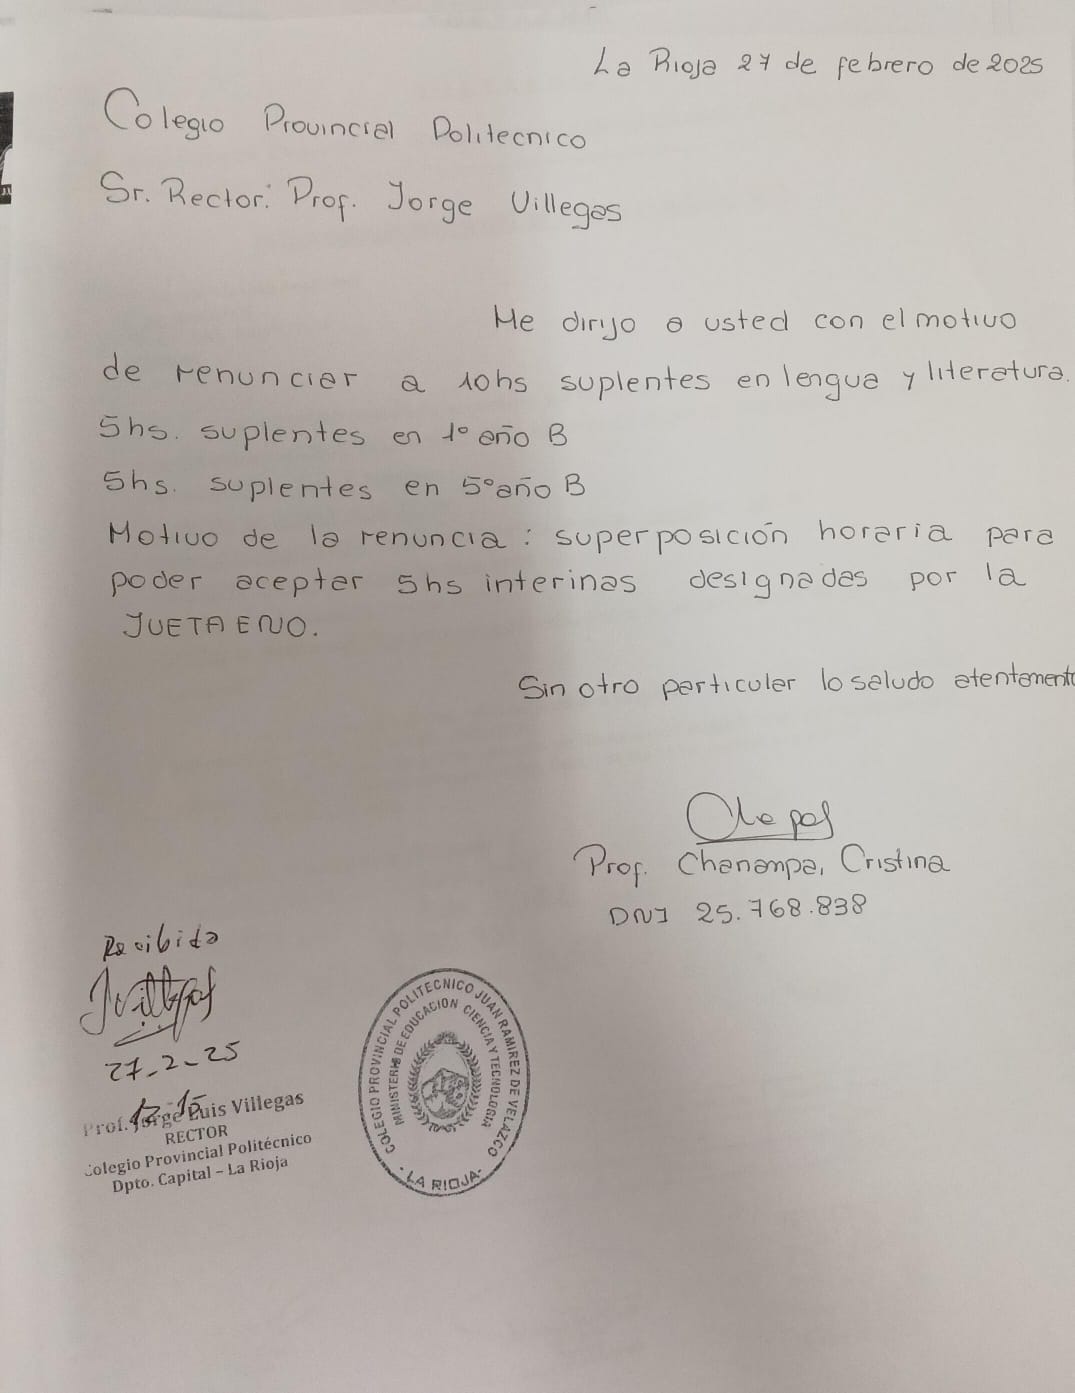 La Rioja 27 de febrero de 2025
Colegio Provincial Politecnico
Sr. Rector: Prof. Jorge Villegas
Me dirijo a usted con el motivo
de renunciar a 10hs suplentes en lengua y literatura.
5hs. suplentes en 1º año B
5hs. suplentes en 5º año B
Motivo de la renuncia: superposición horaria para
poder aceptar 5hs interinas designadas por la
JUETAENO.
Sin otro particular lo saludo atentamente
Prof. Chanampa, Cristina
DNI 25.768.838
Recibido
27-2-25
12:15
Prof. Jorge Luis Villegas
RECTOR
Colegio Provincial Politécnico
Dpto. Capital – La Rioja
COLEGIO PROVINCIAL POLITECNICO JUAN RAMIREZ DE VELAZCO
MINISTERIO DE EDUCACION CIENCIA Y TECNOLOGIA
- LA RIOJA -